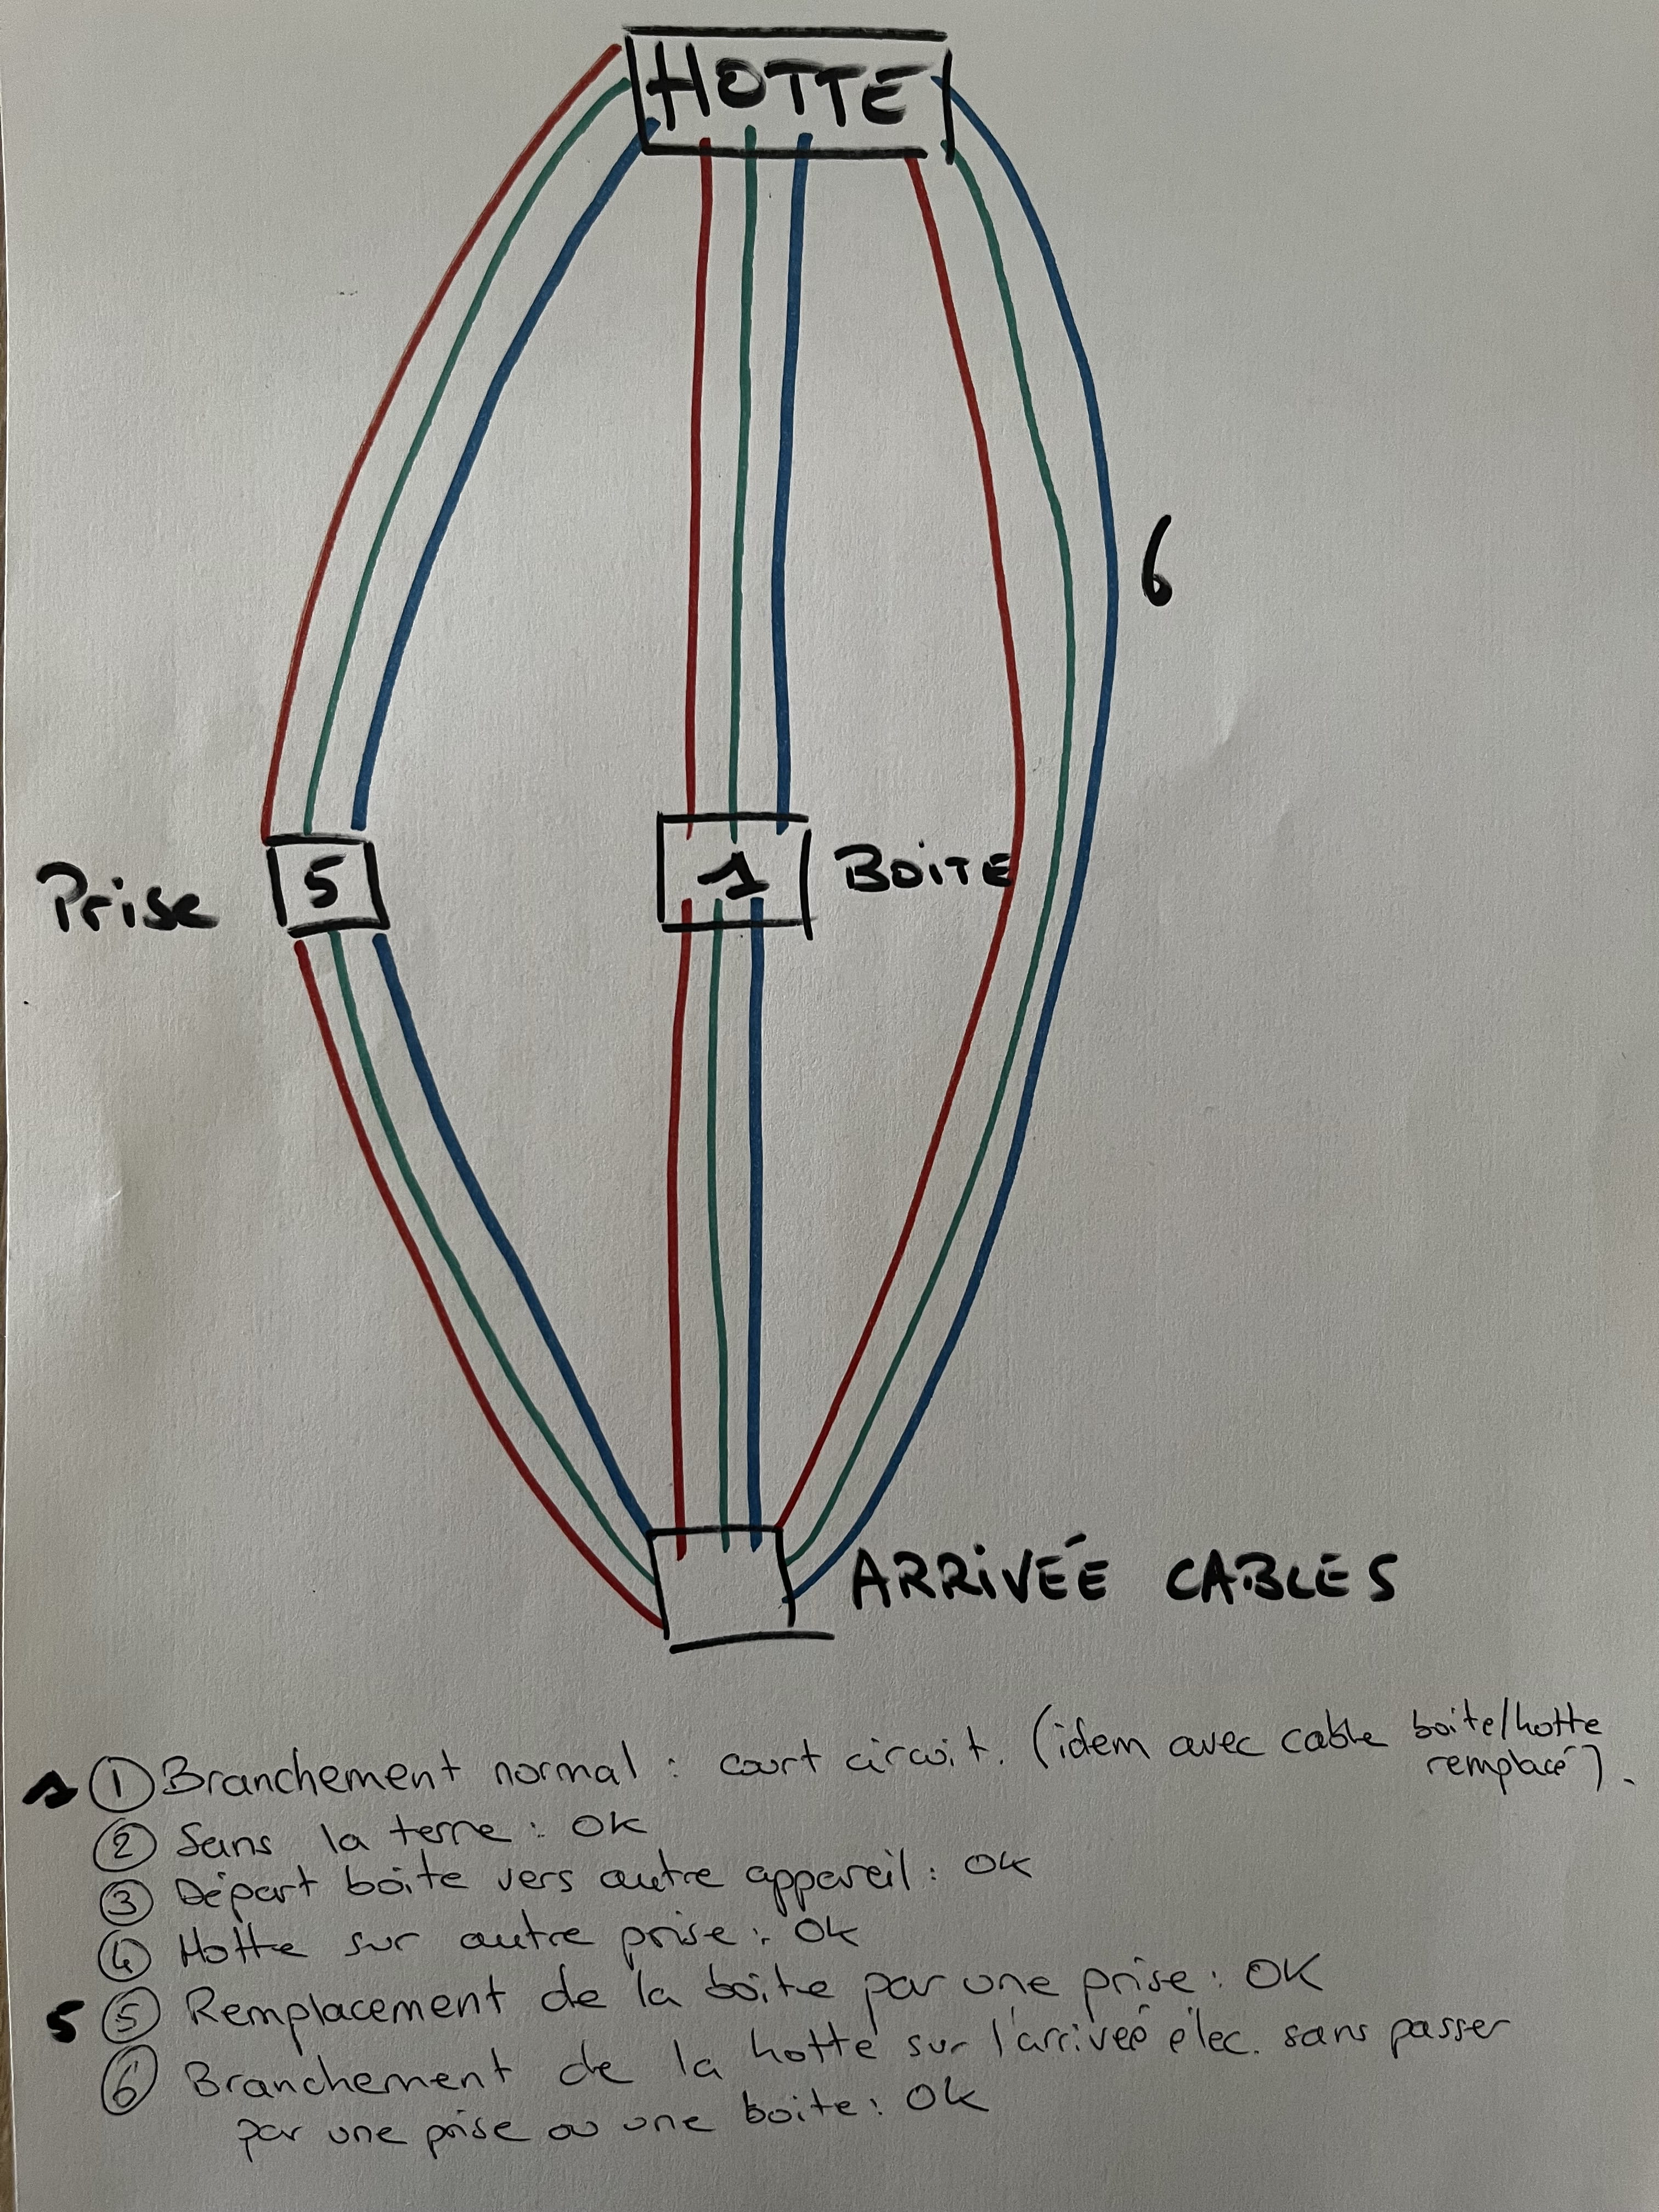 HOTTE
6
Prise
5
1
BOITE
ARRIVÉE CABLES
1 ① Branchement normal : court circuit. (idem avec cable boite/hotte
remplacé).
② Sans la terre : OK
③ Départ boite vers autre appareil : OK
④ Hotte sur autre prise : OK
5 ⑤ Remplacement de la boite par une prise : OK
⑥ Branchement de la hotte sur l'arrivée élec. sans passer
par une prise ou une boite : OK